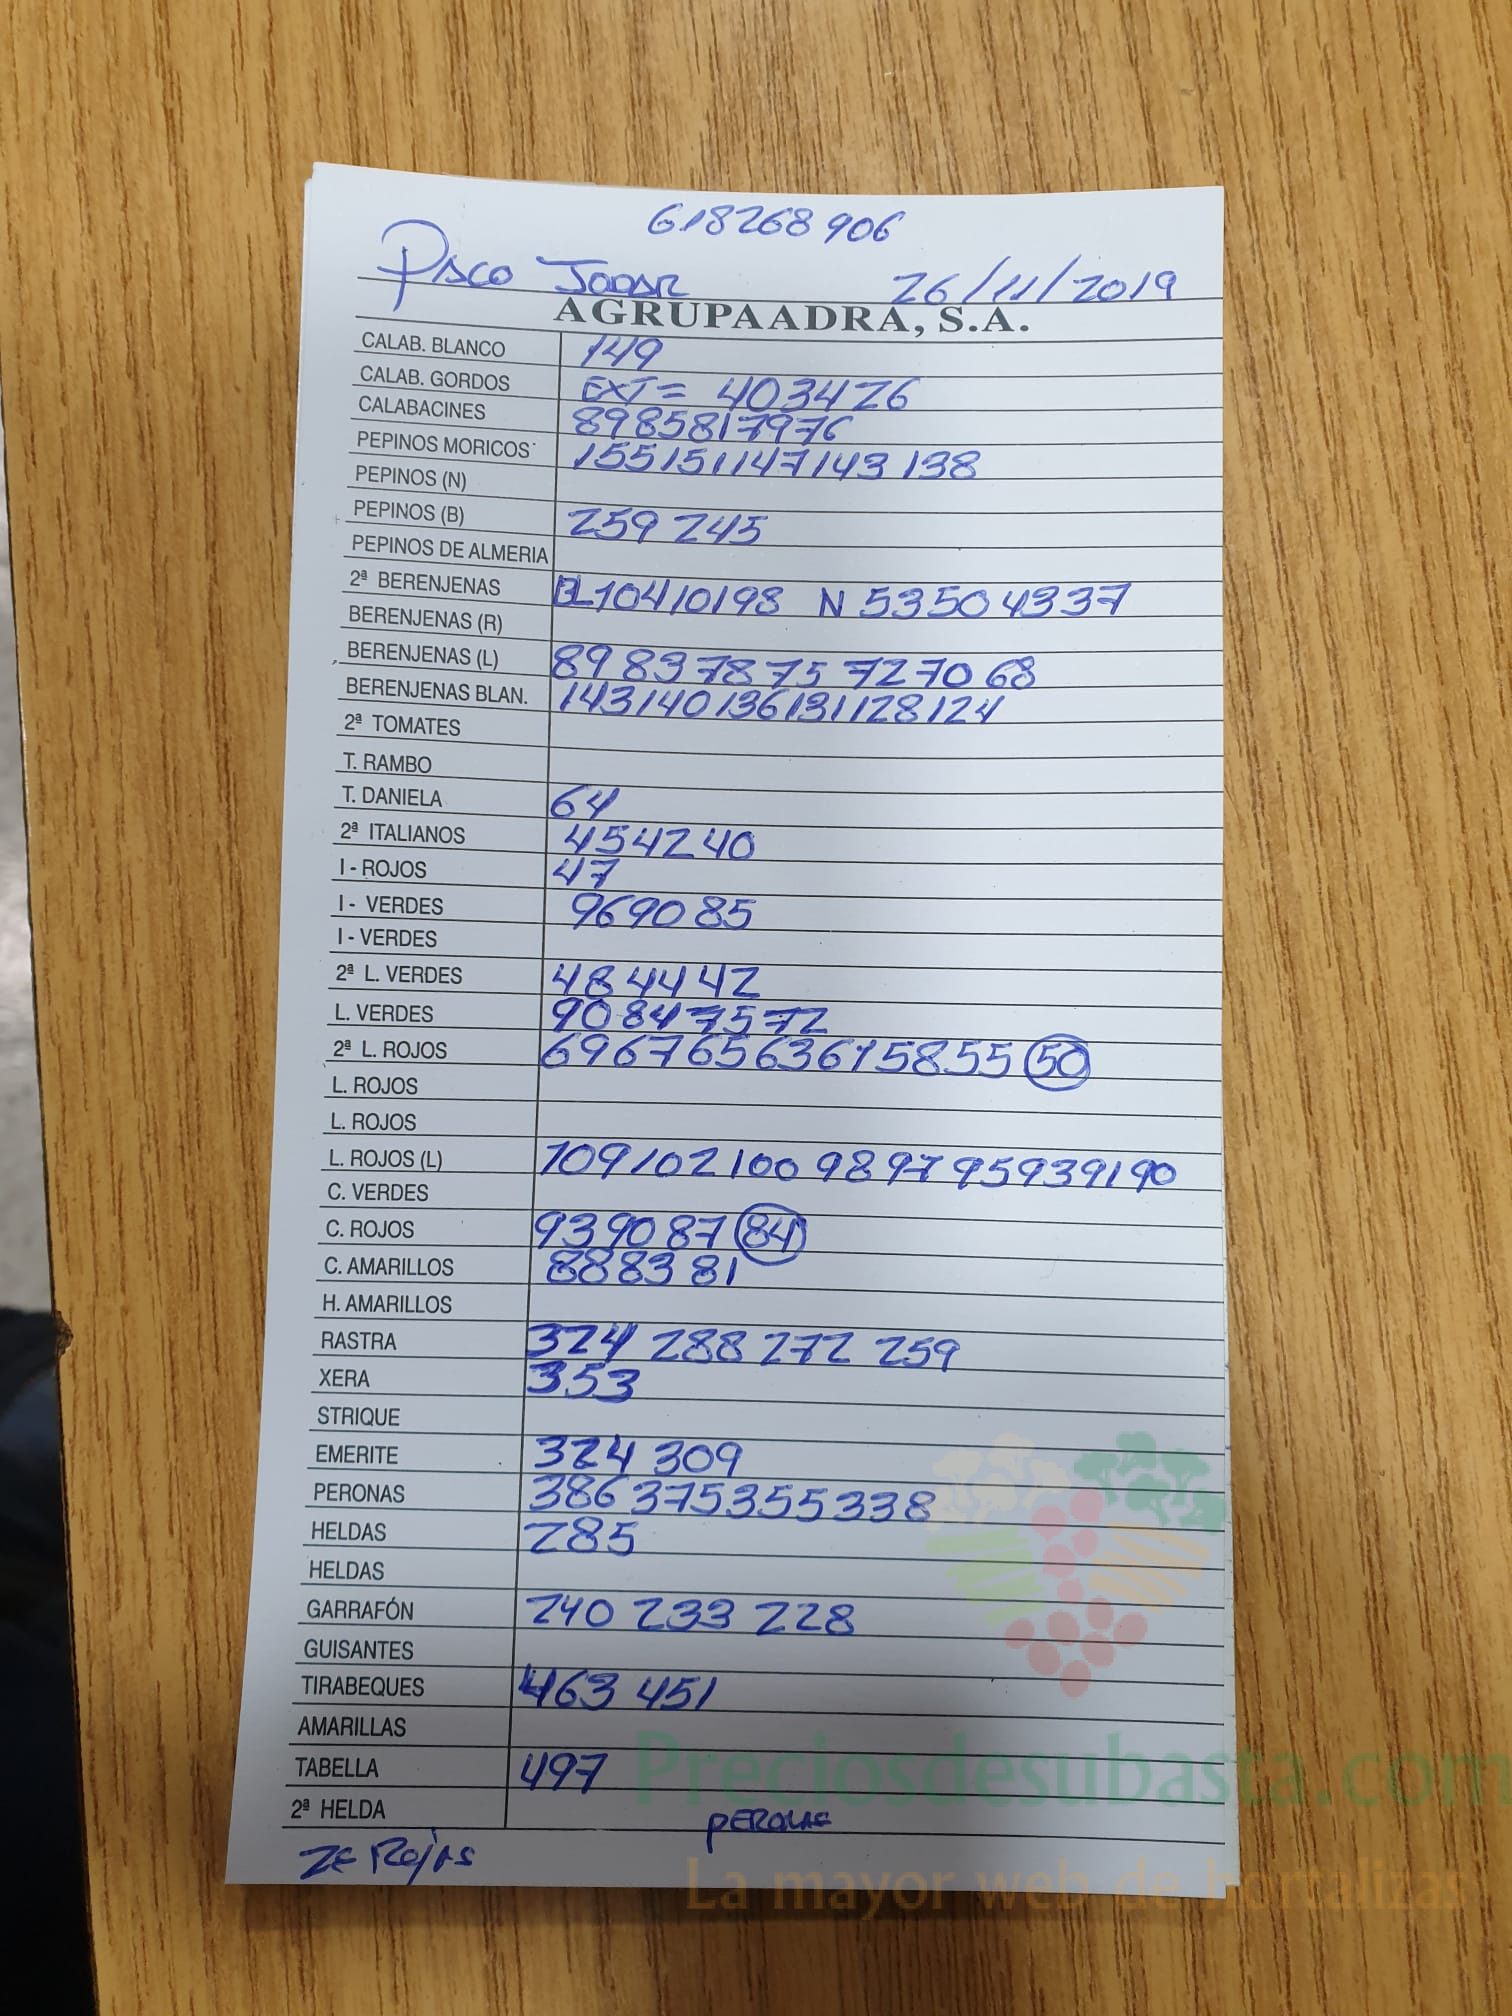 618268906
Paco Jodar 26/11/2019
AGRUPAADRA, S.A.
CALAB. BLANCO 149
CALAB. GORDOS EXT= 403426
CALABACINES 8985817976
PEPINOS MORICOS 155151147143138
PEPINOS (N)
PEPINOS (B) 259 245
PEPINOS DE ALMERIA
2ª BERENJENAS BL10410198 N 53504337
BERENJENAS (R)
BERENJENAS (L) 89837875727068
BERENJENAS BLAN. 143140136131128124
2ª TOMATES
T. RAMBO
T. DANIELA 64
2ª ITALIANOS 454240
I - ROJOS 47
I - VERDES 969085
I - VERDES
2ª L. VERDES 484442
L. VERDES 90847572
2ª L. ROJOS 69676563615855 50
L. ROJOS
L. ROJOS
L. ROJOS (L) 109102100989795939190
C. VERDES
C. ROJOS 939087 84
C. AMARILLOS 888381
H. AMARILLOS
RASTRA 324 288 272 259
XERA 353
STRIQUE
EMERITE 324 309
PERONAS 386375355338
HELDAS 285
HELDAS
GARRAFÓN 240 233 228
GUISANTES
TIRABEQUES 463 451
AMARILLAS
TABELLA 497
Preciosdesubasta.com
2ª HELDA
La mayor web de hortalizas